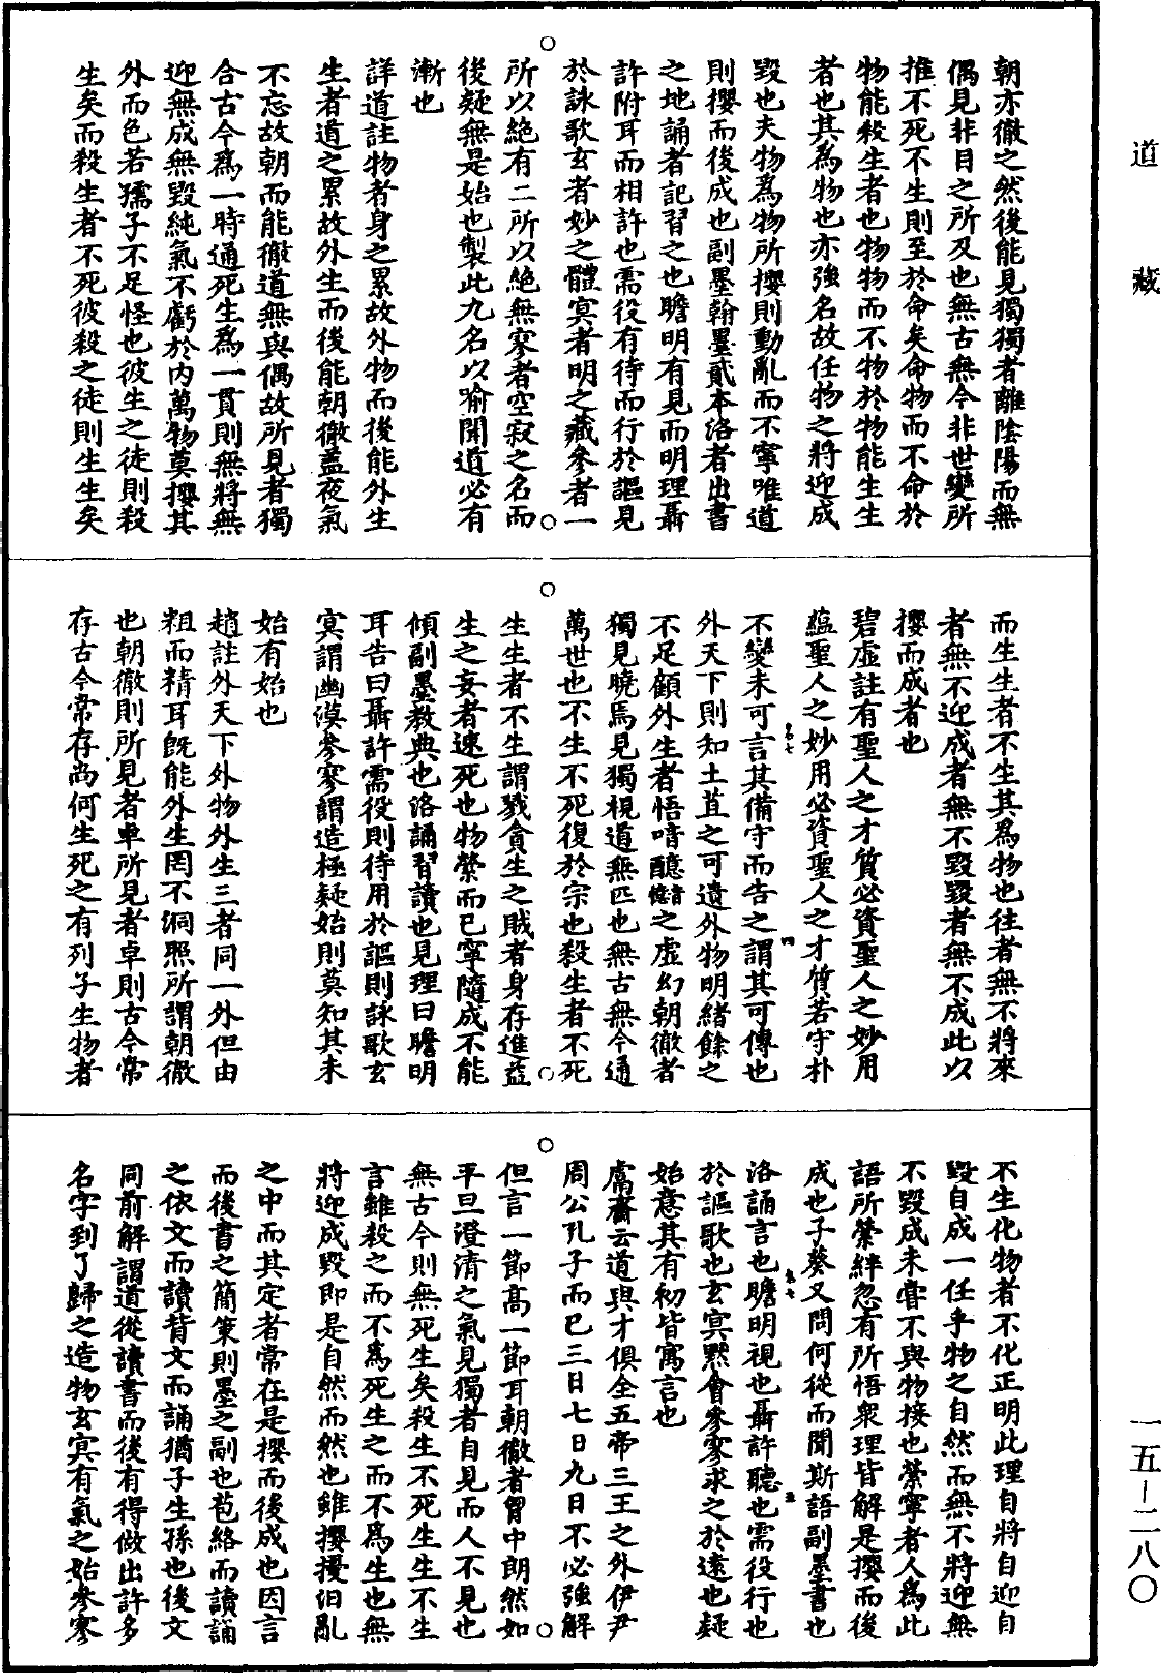 道藏
朝亦徹之然後能見獨獨者離陰陽而無
偶見非目之所及也無古無今非世變所
推不死不生則至於命矣命物而不命於
物能殺生者也物物而不物於物能生生
者也其爲物也亦強名故任物之將迎成
毀也夫物爲物所攖則動亂而不寧唯道
則攖而後成也副墨翰墨貳本洛者出書
之地誦者記習之也瞻明有見而明理聶
許附耳而相許也需役有待而行於謳見
於詠歌玄者妙之體冥者明之藏參者一
所以絶有二所以絶無寥者空寂之名而
後疑無是始也製此九名以喻聞道必有
漸也
詳道註物者身之累故外物而後能外生
生者道之累故外生而後能朝徹蓋夜氣
不忘故朝而能徹道無與偶故所見者獨
合古今爲一時通死生爲一貫則無將無
迎無成無毀純氣不虧於内萬物莫攖其
外而色若孺子不足怪也彼生之徒則殺
生矣而殺生者不死彼殺之徒則生生矣
而生生者不生其爲物也往者無不將來
者無不迎成者無不毀毀者無不成此以
攖而成者也
碧虛註有聖人之才質必資聖人之妙用
蘊聖人之妙用必資聖人之才質若守朴
不變未可言其備守而告之謂其可傳也
外天下則知土苴之可遺外物明緒餘之
不足顧外生者悟喑醷之虛幻朝徹者
獨見曉焉見獨視道無匹也無古無今通
萬世也不生不死復於宗也殺生者不死
生生者不生謂戮貪生之賊者身存進益
生之妄者速死也物縈而已寧隨成不能
傾副墨教典也洛誦習讀也見理曰瞻明
耳告曰聶許需役則待用於謳則詠歌玄
冥謂幽漠參寥謂造極疑始則莫知其未
始有始也
趙註外天下外物外生三者同一外但由
粗而精耳既能外生罔不洞照所謂朝徹
也朝徹則所見者卓所見者卓則古今常
存古今常存尚何生死之有列子生物者
不生化物者不化正明此理自將自迎自
毀自成一任乎物之自然而無不將迎無
不毀成未嘗不與物接也縈寧者人爲此
語所縈絆忽有所悟衆理皆解是攖而後
成也子葵又問何從而聞斯語副墨書也
洛誦言也瞻明視也聶許聽也需役行也
於謳歌也玄冥默會參寥求之於遠也疑
始意其有初皆寓言也
鬳齋云道與才俱全五帝三王之外伊尹
周公孔子而已三日七日九日不必強解
但言一節高一節耳朝徹者胷中朗然如
平旦澄清之氣見獨者自見而人不見也
無古今則無死生矣殺生不死生生不生
言雖殺之而不爲死生之而不爲生也無
將迎成毀即是自然而然也雖攖擾汩亂
之中而其定者常在是攖而後成也因言
而後書之簡策則墨之副也苞絡而讀誦
之依文而讀背文而誦猶子生孫也後文
同前解謂道從讀書而後有得做出許多
名字到了歸之造物玄冥有氣之始參寥
一五—二八〇